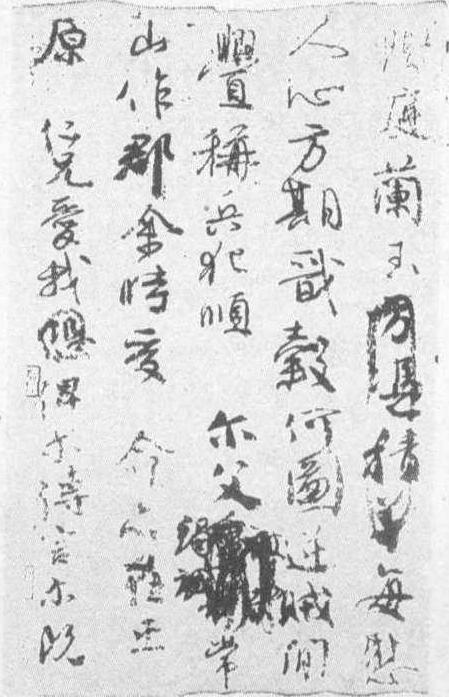 階庭蘭玉方憑積善每慰
人心方期戩穀何圖逆賊間
釁稱兵犯順尔父竭誠常
山作郡余時受命亦在平
原仁兄愛我俾尔傳言尔既